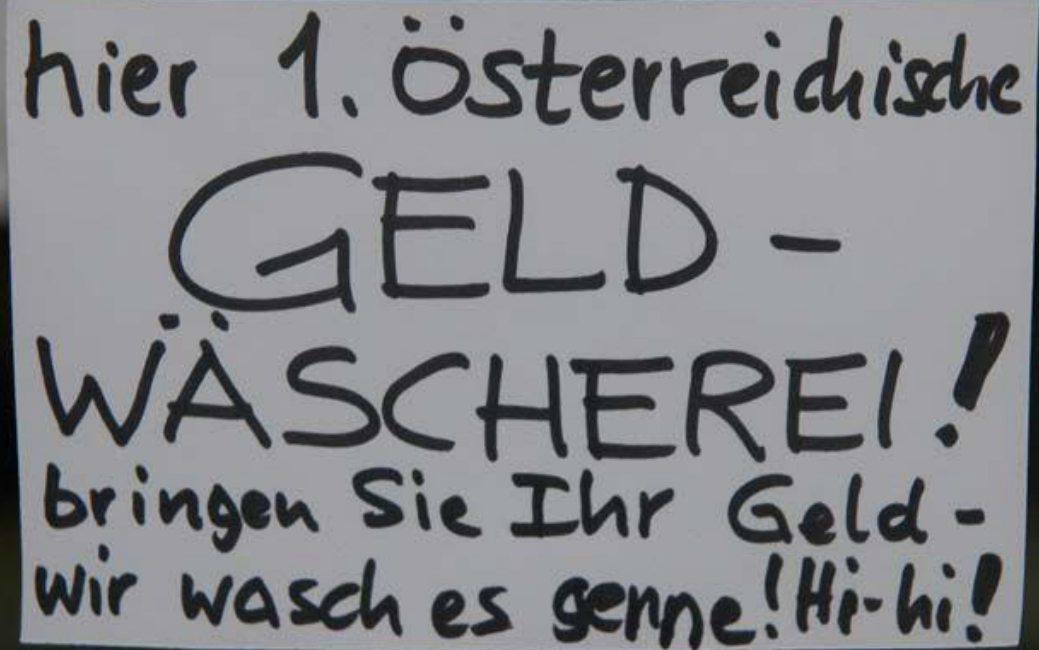 hier 1. Österreichische
GELD -
WÄSCHEREI!
bringen Sie Ihr Geld -
wir wasch es gerne! Hi-hi!